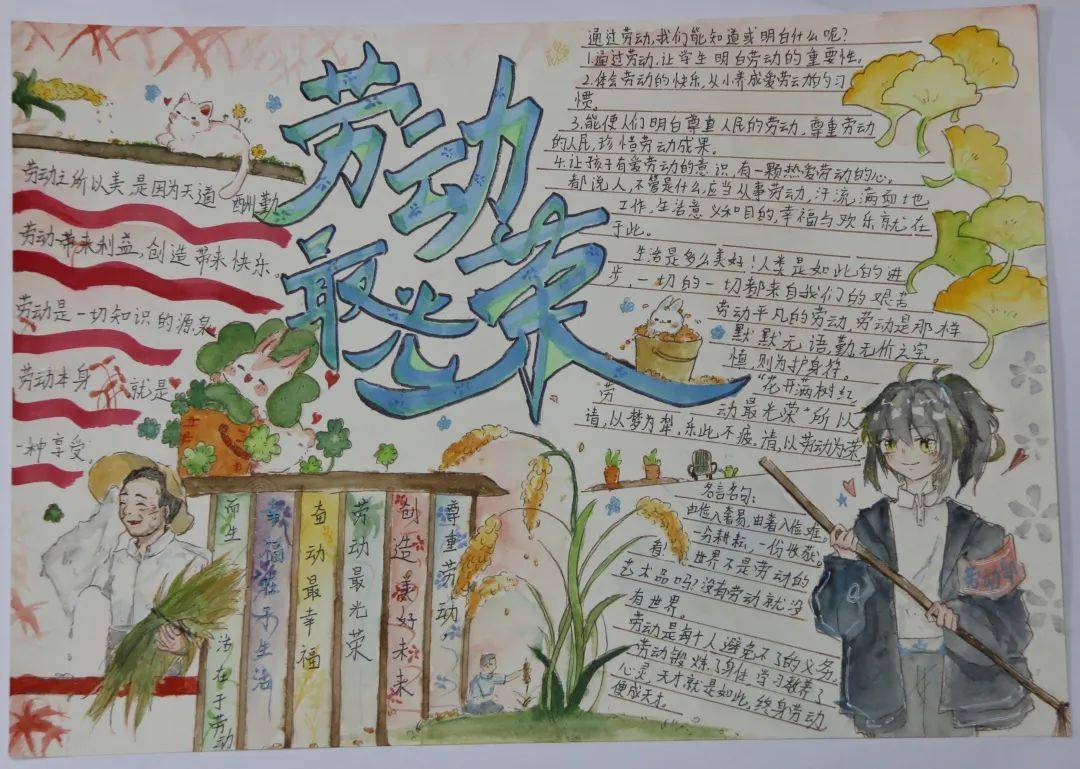 劳动
最光荣
劳动之所以美,是因为天道酬勤
劳动带来利益,创造带来快乐。
劳动是一切知识的源泉
劳动本身就是
一种享受。
通过劳动,我们能知道或明白什么呢?
1.通过劳动,让学生明白劳动的重要性。
2.体会劳动的快乐,从小养成爱劳动的习
惯。
3.能使人们明白尊重人民的劳动,尊重劳动
的人民,珍惜劳动成果。
4.让孩子有爱劳动的意识,有一颗热爱劳动的心。
都说人,不管是什么,应当从事劳动,汗流满面地
工作,生活意义和目的,幸福与欢乐就在
于此。
生活是多么美好!人类是如此的进
步,一切的一切都来自我们的艰苦
劳动平凡的劳动,劳动是那样
默默无语勤无价之宝。
慎,则为护身符。
“花开满树红
劳动最光荣”所以
请,以梦为犁,乐此不疲,请,以劳动为荣
名言名句:
由俭入奢易,由奢入俭难。
一分耕耘,一份收获。
看!世界不是劳动的
艺术品吗?没有劳动就没
有世界。
劳动是每个人避免不了的义务。
劳动锻炼了身性,学习教养了
心灵。天才就是如此,终身劳动
便成天才。
尊重劳动,
创造美好未来
劳动最光荣
直动最幸福
幸福在于生活
而生活在于劳动